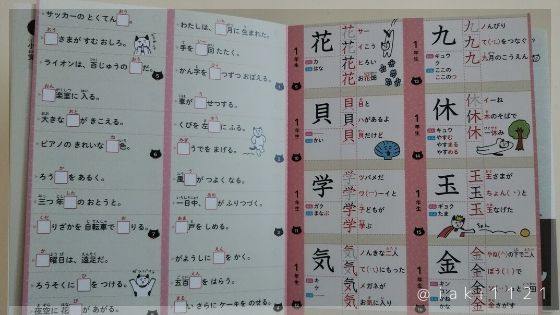 サッカーの とくてん□。
□さまが すむ おしろ。
ライオンは、百じゅうの□
□楽室に 入る。
大きな□が きこえる。
ピアノの きれいな□色。
ろう□を あるく。
三つ 年□の おとうと。
□りざかを 自転車で□りる。
□曜日は、遠足だ。
ろうそくに□を つける。
夜空に 花□が あがる。
わたしは、□月に 生まれた。
手を□回 たたく。
かん字を□つずつ おぼえる。
車が□せつする。
くびを 左□に ふる。
□うでを まげる。
□風が つよくなる。
一日中、□が ふりつづく。
□戸を しめる。
がようしに□を かく。
五百□を はらう。
□い さらに ケーキを のせる。
1年生
花
カ
はな
サー
イこう
ヒろい
お花畑
1年生
貝
かい
目と
ハがあるよ
貝だけど
1年生
学
ガク
まなぶ
ツバメだ
ワ(ー)ーイと
子どもが
学ぶよ
1年生
気
キ
ケ
のんきな二人
て(・)にもった
メガネが
お気に入り
1年生
九
キュウ
ク
ここの
ここのつ
ノんびり
て(・)をつなぐ
九月のこうえん
1年生
休
キュウ
やすむ
やすまる
やすめる
イーね
木のそばで
一休み
1年生
玉
ギョク
たま
王さまが
ちょん(・)と
玉なげた
1年生
金
キン
コン
かね
かな
やね(へ)の下で二人
ぼう(｜)で
金さがす
@jaki1121